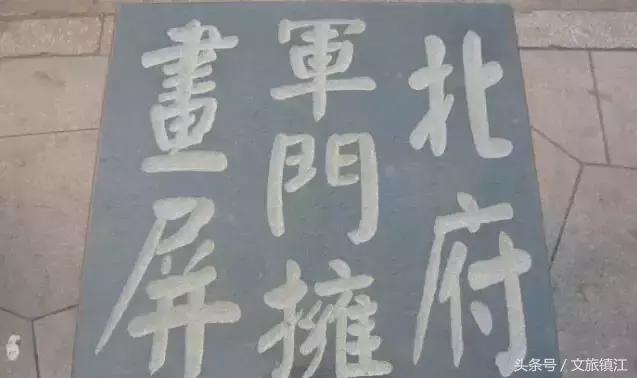 北府
軍門擁
畫屏
头条号／文旅镇江